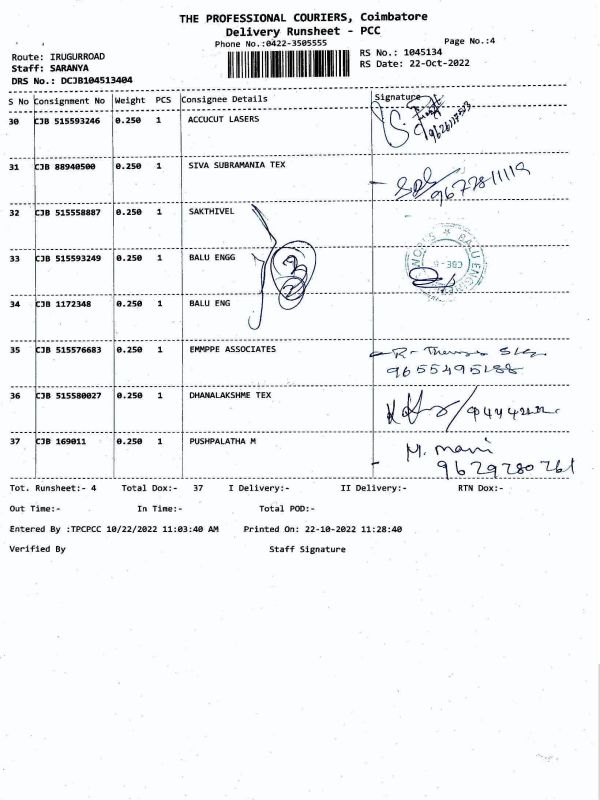 THE PROFESSIONAL COURIERS, Coimbatore
Delivery Runsheet - PCC
Phone No.:0422-3505555
Page No.:4
Route: IRUGURROAD
RS No.: 1045134
Staff: SARANYA
RS Date: 22-Oct-2022
DRS No.: DCJB104513404
S No Consignment No Weight PCS Consignee Details Signature
30 CJB 515593246 0.250 1 ACCUCUT LASERS
31 CJB 88940500 0.250 1 SIVA SUBRAMANIA TEX
32 CJB 515558887 0.250 1 SAKTHIVEL
33 CJB 515593249 0.250 1 BALU ENGG
34 CJB 1172348 0.250 1 BALU ENG
35 CJB 515576683 0.250 1 EMMPPE ASSOCIATES
36 CJB 515580027 0.250 1 DHANALAKSHME TEX
37 CJB 169011 0.250 1 PUSHPALATHA M M. mani
9629780761
Tot. Runsheet:- 4 Total Dox:- 37 I Delivery:- II Delivery:- RTN Dox:-
Out Time:- In Time:- Total POD:-
Entered By :TPCPCC 10/22/2022 11:03:40 AM Printed On: 22-10-2022 11:28:40
Verified By Staff Signature